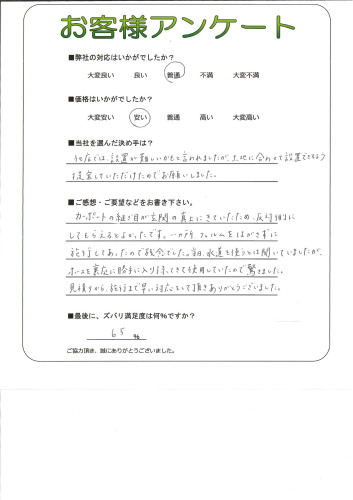 お客様アンケート
■弊社の対応はいかがでしたか?
大変良い 良い 普通 不満 大変不満
■価格はいかがでしたか?
大変安い 安い 普通 高い 大変高い
■当社を選んだ決め手は?
他店では、設置が難しいかもと言われましたが、土地に合わせて設置できるよう
提案していただけたのでお願いしました。
■ご感想・ご要望などをお書き下さい。
カーポートの継ぎ目が玄関の真上にきていたため、反対側に
してもらえるとよかったです。一カ所フィルムをはがさずに
施行してあったので残念でした。当日、水道を使うとは聞いていましたが、
ホースを裏庭に勝手に入り探してきて使用していたので驚きました。
見積りから、施行まで早い対応をして頂きありがとうございました。
■最後に、ズバリ満足度は何%ですか?
65 %
ご協力頂き、誠にありがとうございました。